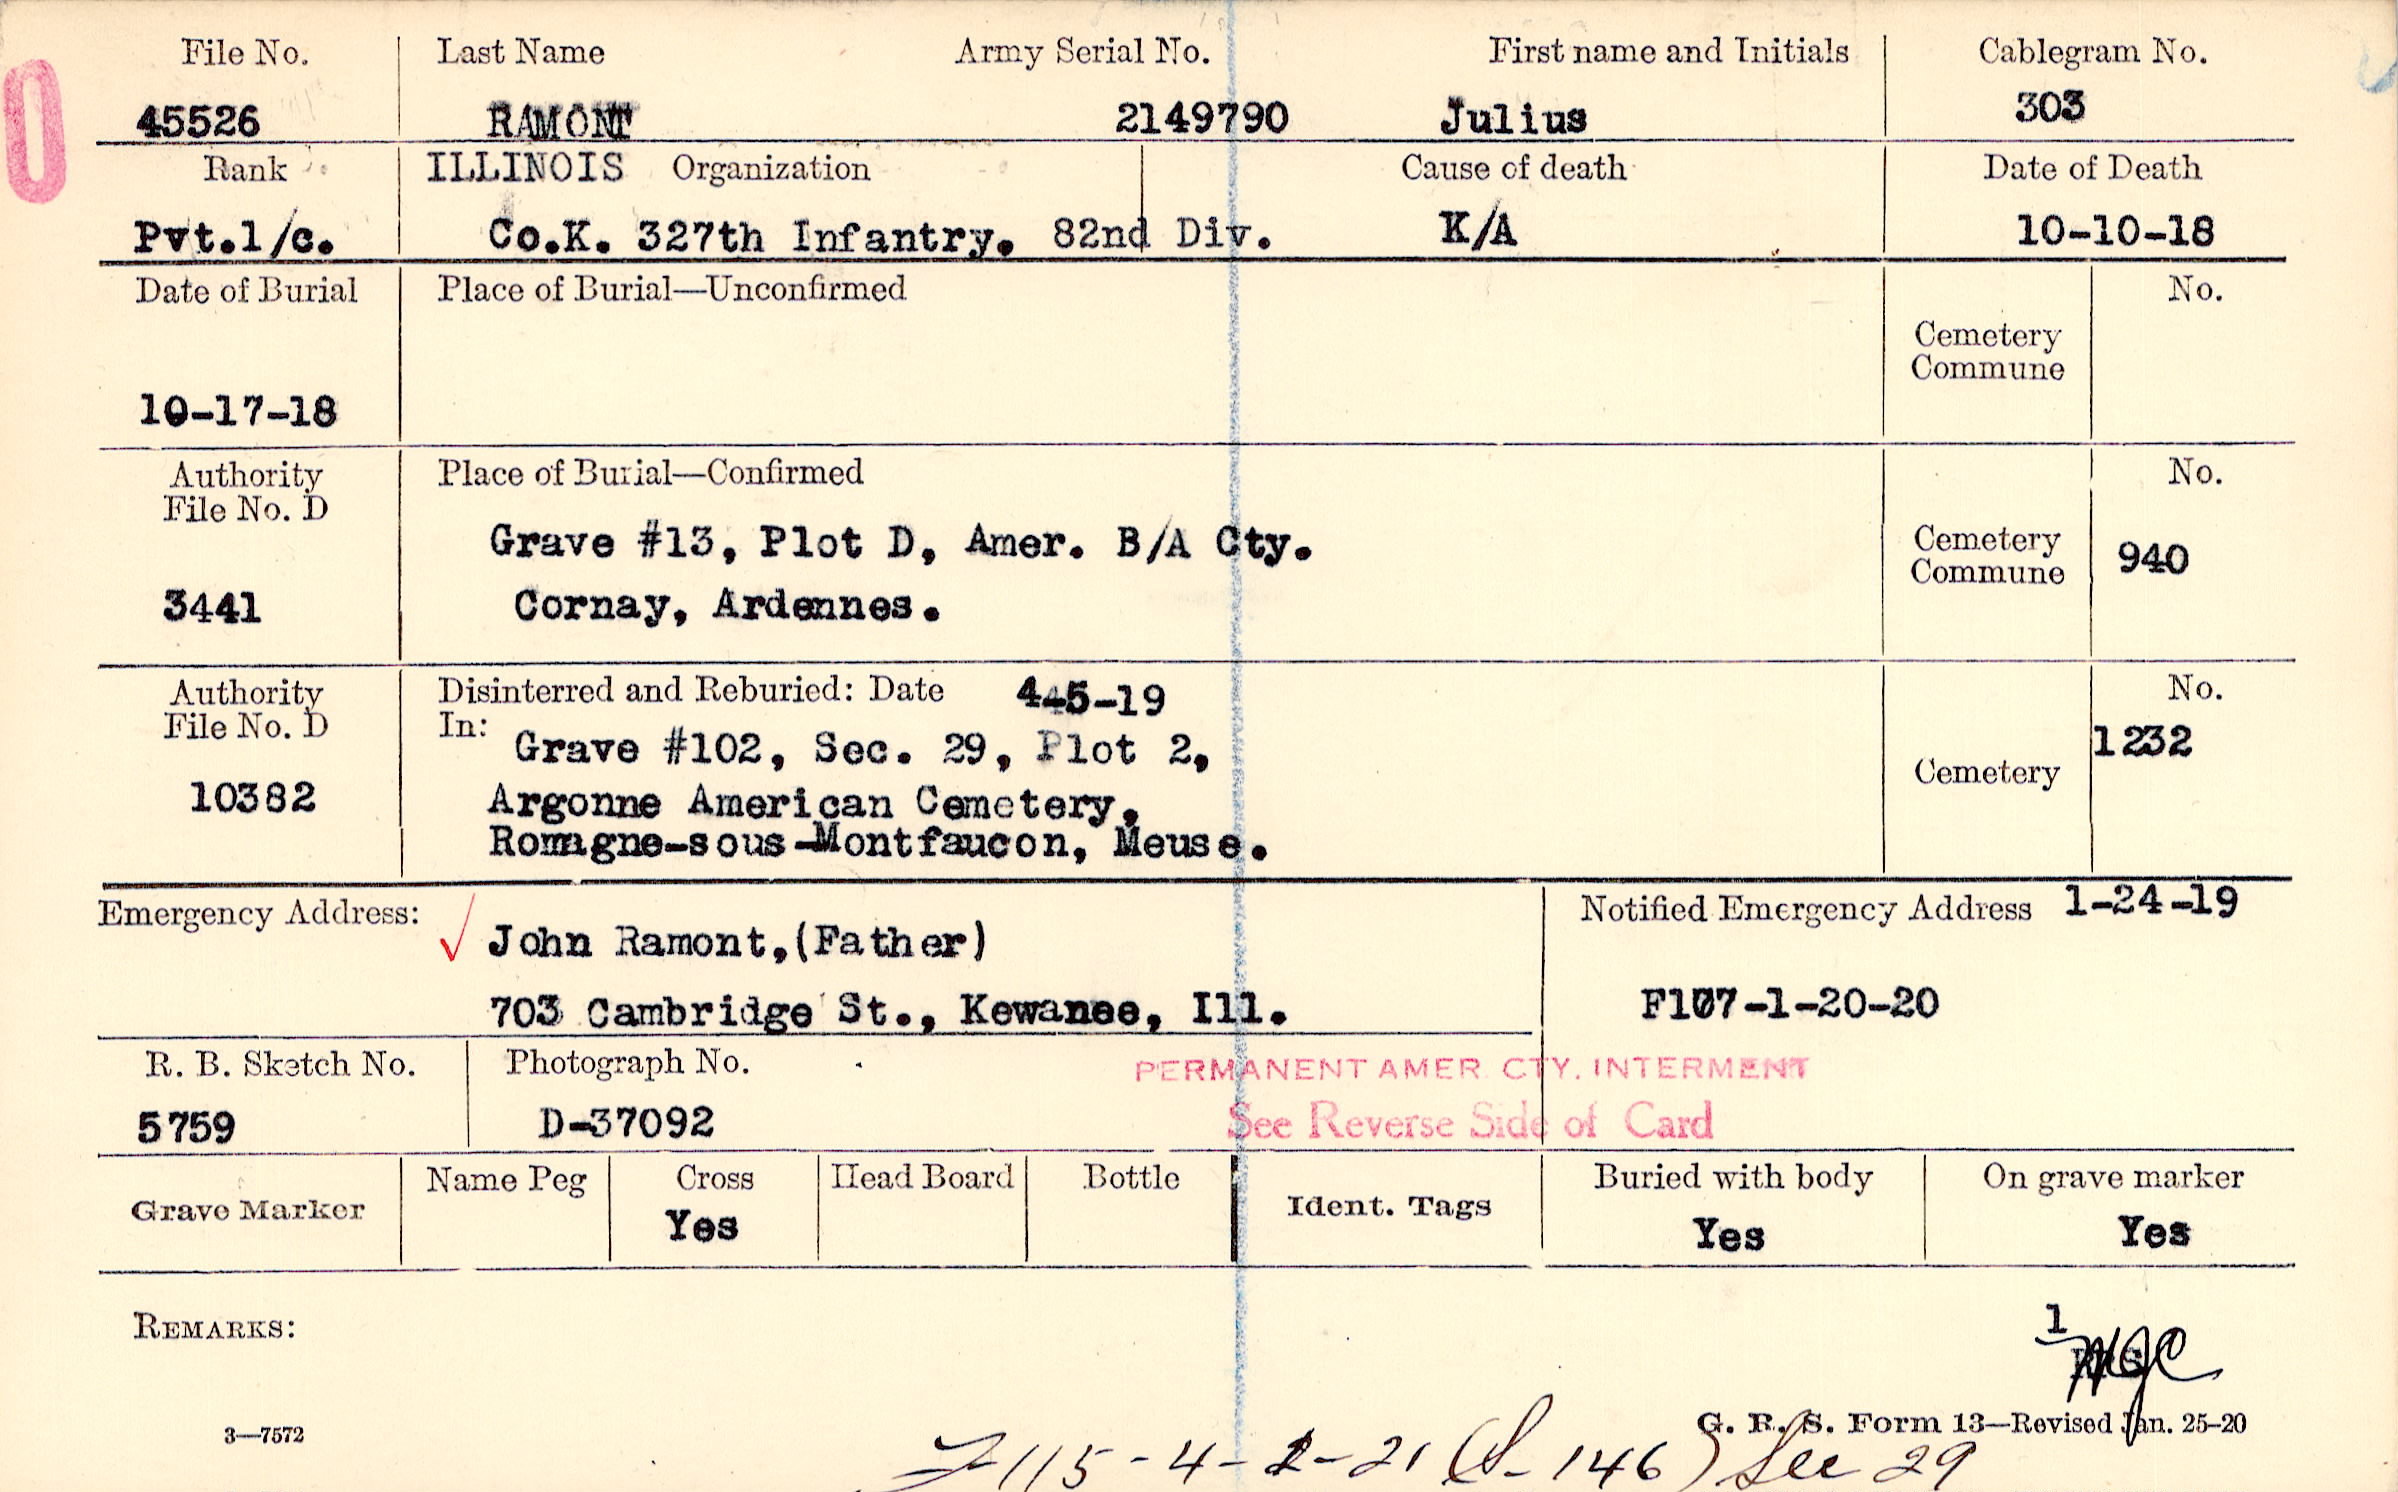 File No. Last Name Army Serial No. First name and Initials Cablegram No.
45526 RAMONT 2149790 Julius 303
Rank ILLINOIS Organization Cause of death Date of Death
Pvt.1/c. Co.K. 327th Infantry. 82nd Div. K/A 10-10-18
Date of Burial Place of Burial—Unconfirmed No.
Cemetery
Commune
10-17-18
Authority Place of Burial—Confirmed No.
File No. D
Grave #13, Plot D, Amer. B/A Cty. Cemetery
Commune 940
3441 Cornay, Ardennes.
Authority Disinterred and Reburied: Date 4-5-19 No.
File No. D In: Grave #102, Sec. 29, Plot 2, 1232
Cemetery
10382 Argonne American Cemetery,
Romagne-sous-Montfaucon, Meuse.
Emergency Address: Notified Emergency Address 1-24-19
John Ramont,(Father)
703 Cambridge St., Kewanee, Ill. F107-1-20-20
R. B. Sketch No. Photograph No. PERMANENT AMER. CTY. INTERMENT
5759 D-37092 See Reverse Side of Card
Grave Marker Name Peg Cross Head Board Bottle Ident. Tags Buried with body On grave marker
Yes Yes Yes
REMARKS:
1
3—7572 G. R. S. Form 13—Revised Jan. 25-20
115-4-2-21 (S-146) See 29